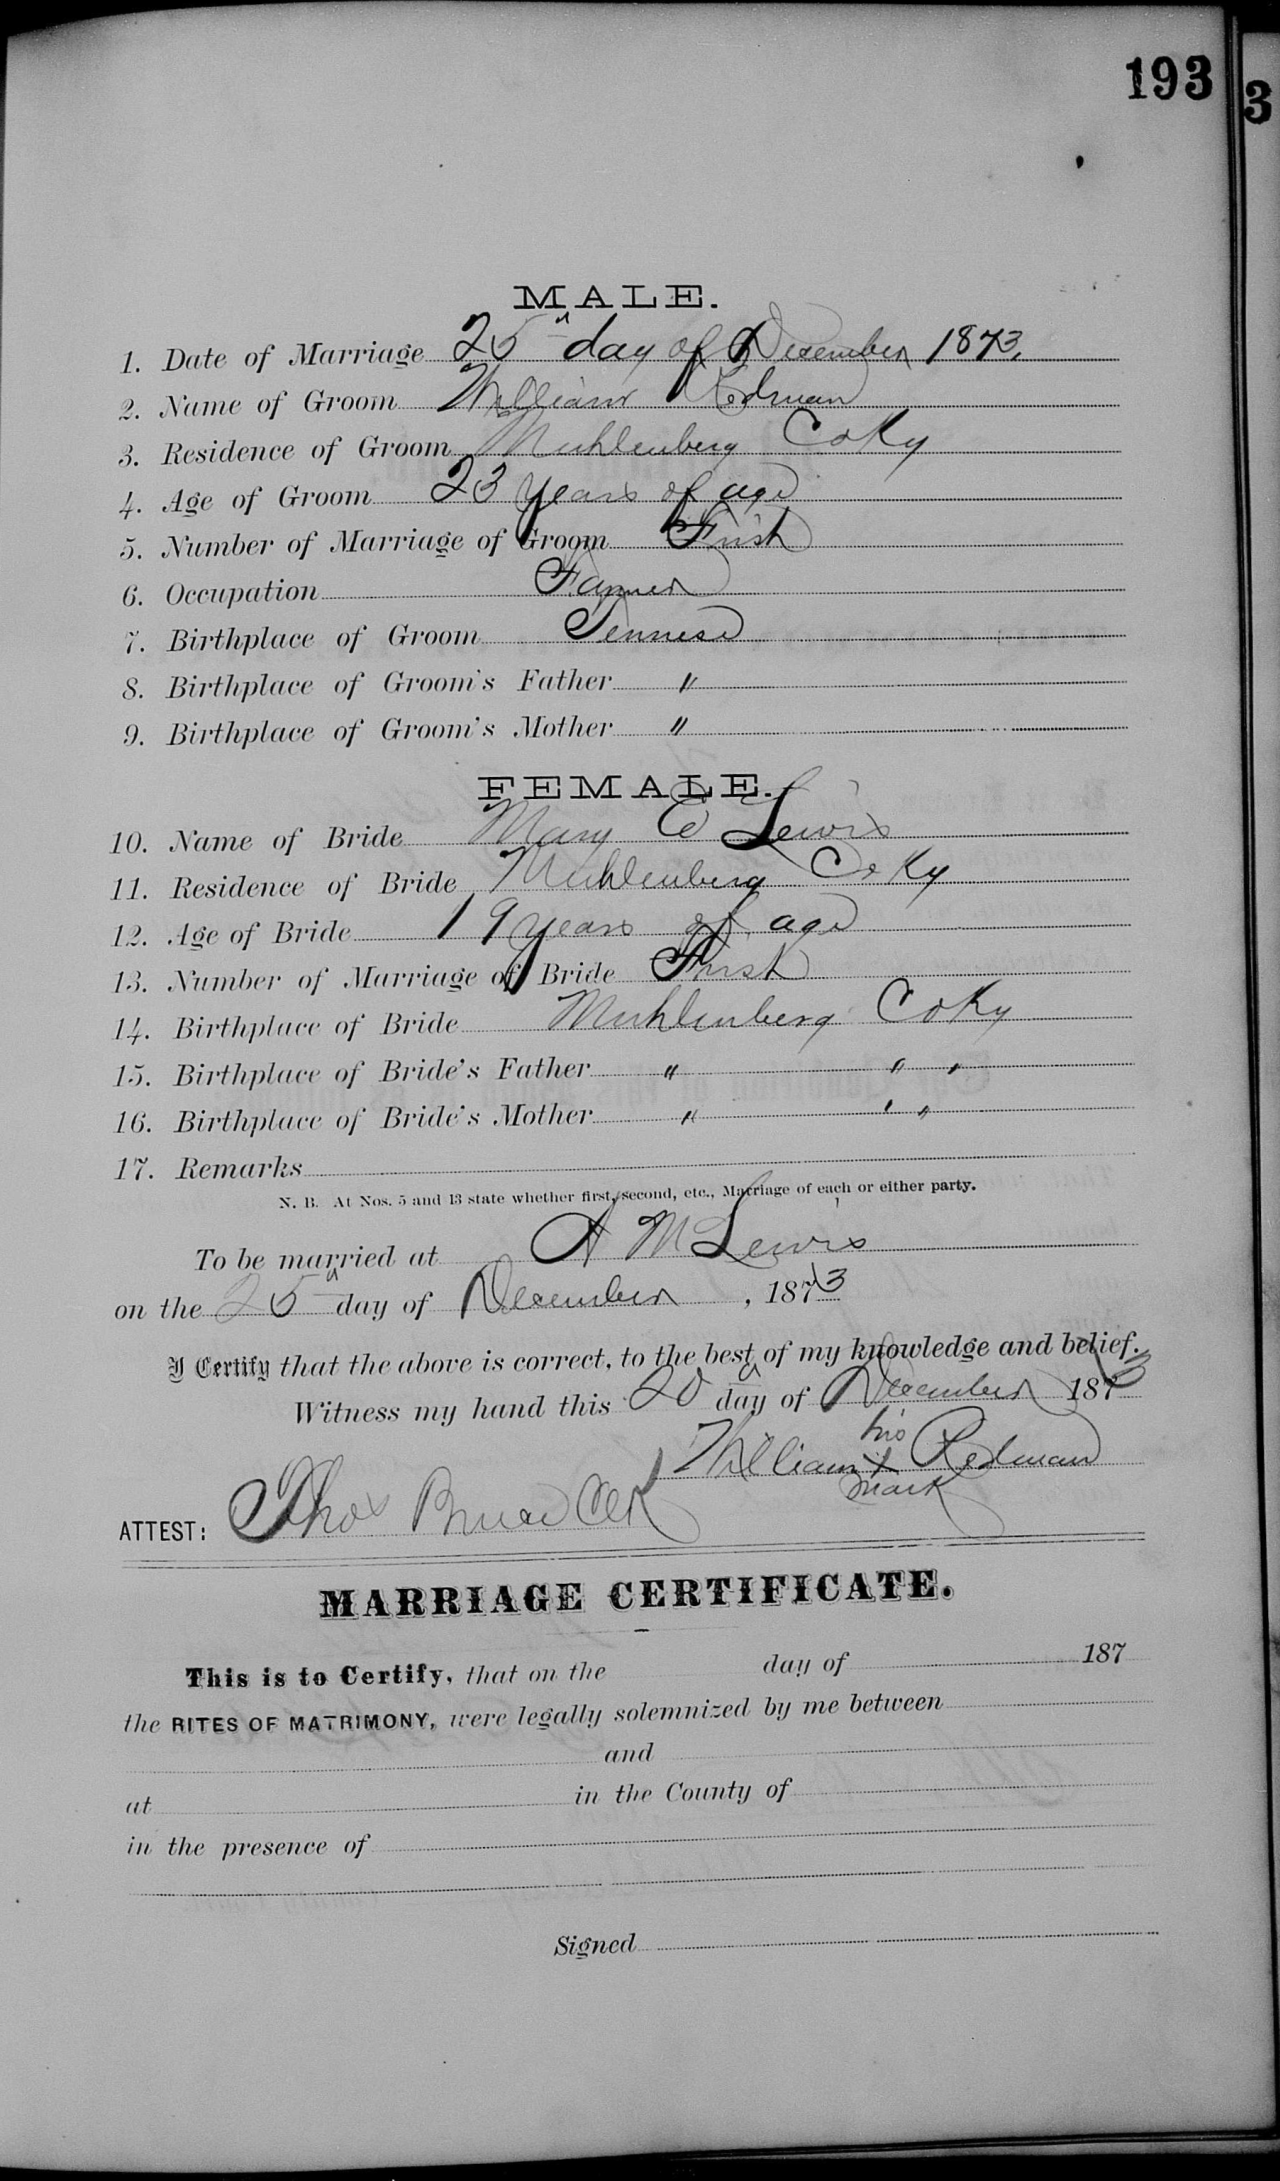 193
3
MALE.
1. Date of Marriage 25" day of December 1873,
2. Name of Groom William Redman
3. Residence of Groom Muhlenberg Co Ky
4. Age of Groom 23 years of age
5. Number of Marriage of Groom First
6. Occupation Farmer
7. Birthplace of Groom Tennese
8. Birthplace of Groom's Father "
9. Birthplace of Groom's Mother "
FEMALE.
10. Name of Bride Mary E Lewis
11. Residence of Bride Muhlenberg Co Ky
12. Age of Bride 19 years of age
13. Number of Marriage of Bride First
14. Birthplace of Bride Muhlenberg Co Ky
15. Birthplace of Bride's Father " " "
16. Birthplace of Bride's Mother " " "
17. Remarks
N. B. At Nos. 5 and 13 state whether first, second, etc., Marriage of each or either party.
To be married at A M Lewis
on the 25" day of December, 1873
I Certify that the above is correct, to the best of my knowledge and belief.
Witness my hand this 20" day of December 1873
his
William x Redman
mark
ATTEST: Thos Bruce Clk
MARRIAGE CERTIFICATE.
This is to Certify, that on the day of 187
the RITES OF MATRIMONY, were legally solemnized by me between
and
at in the County of
in the presence of
Signed